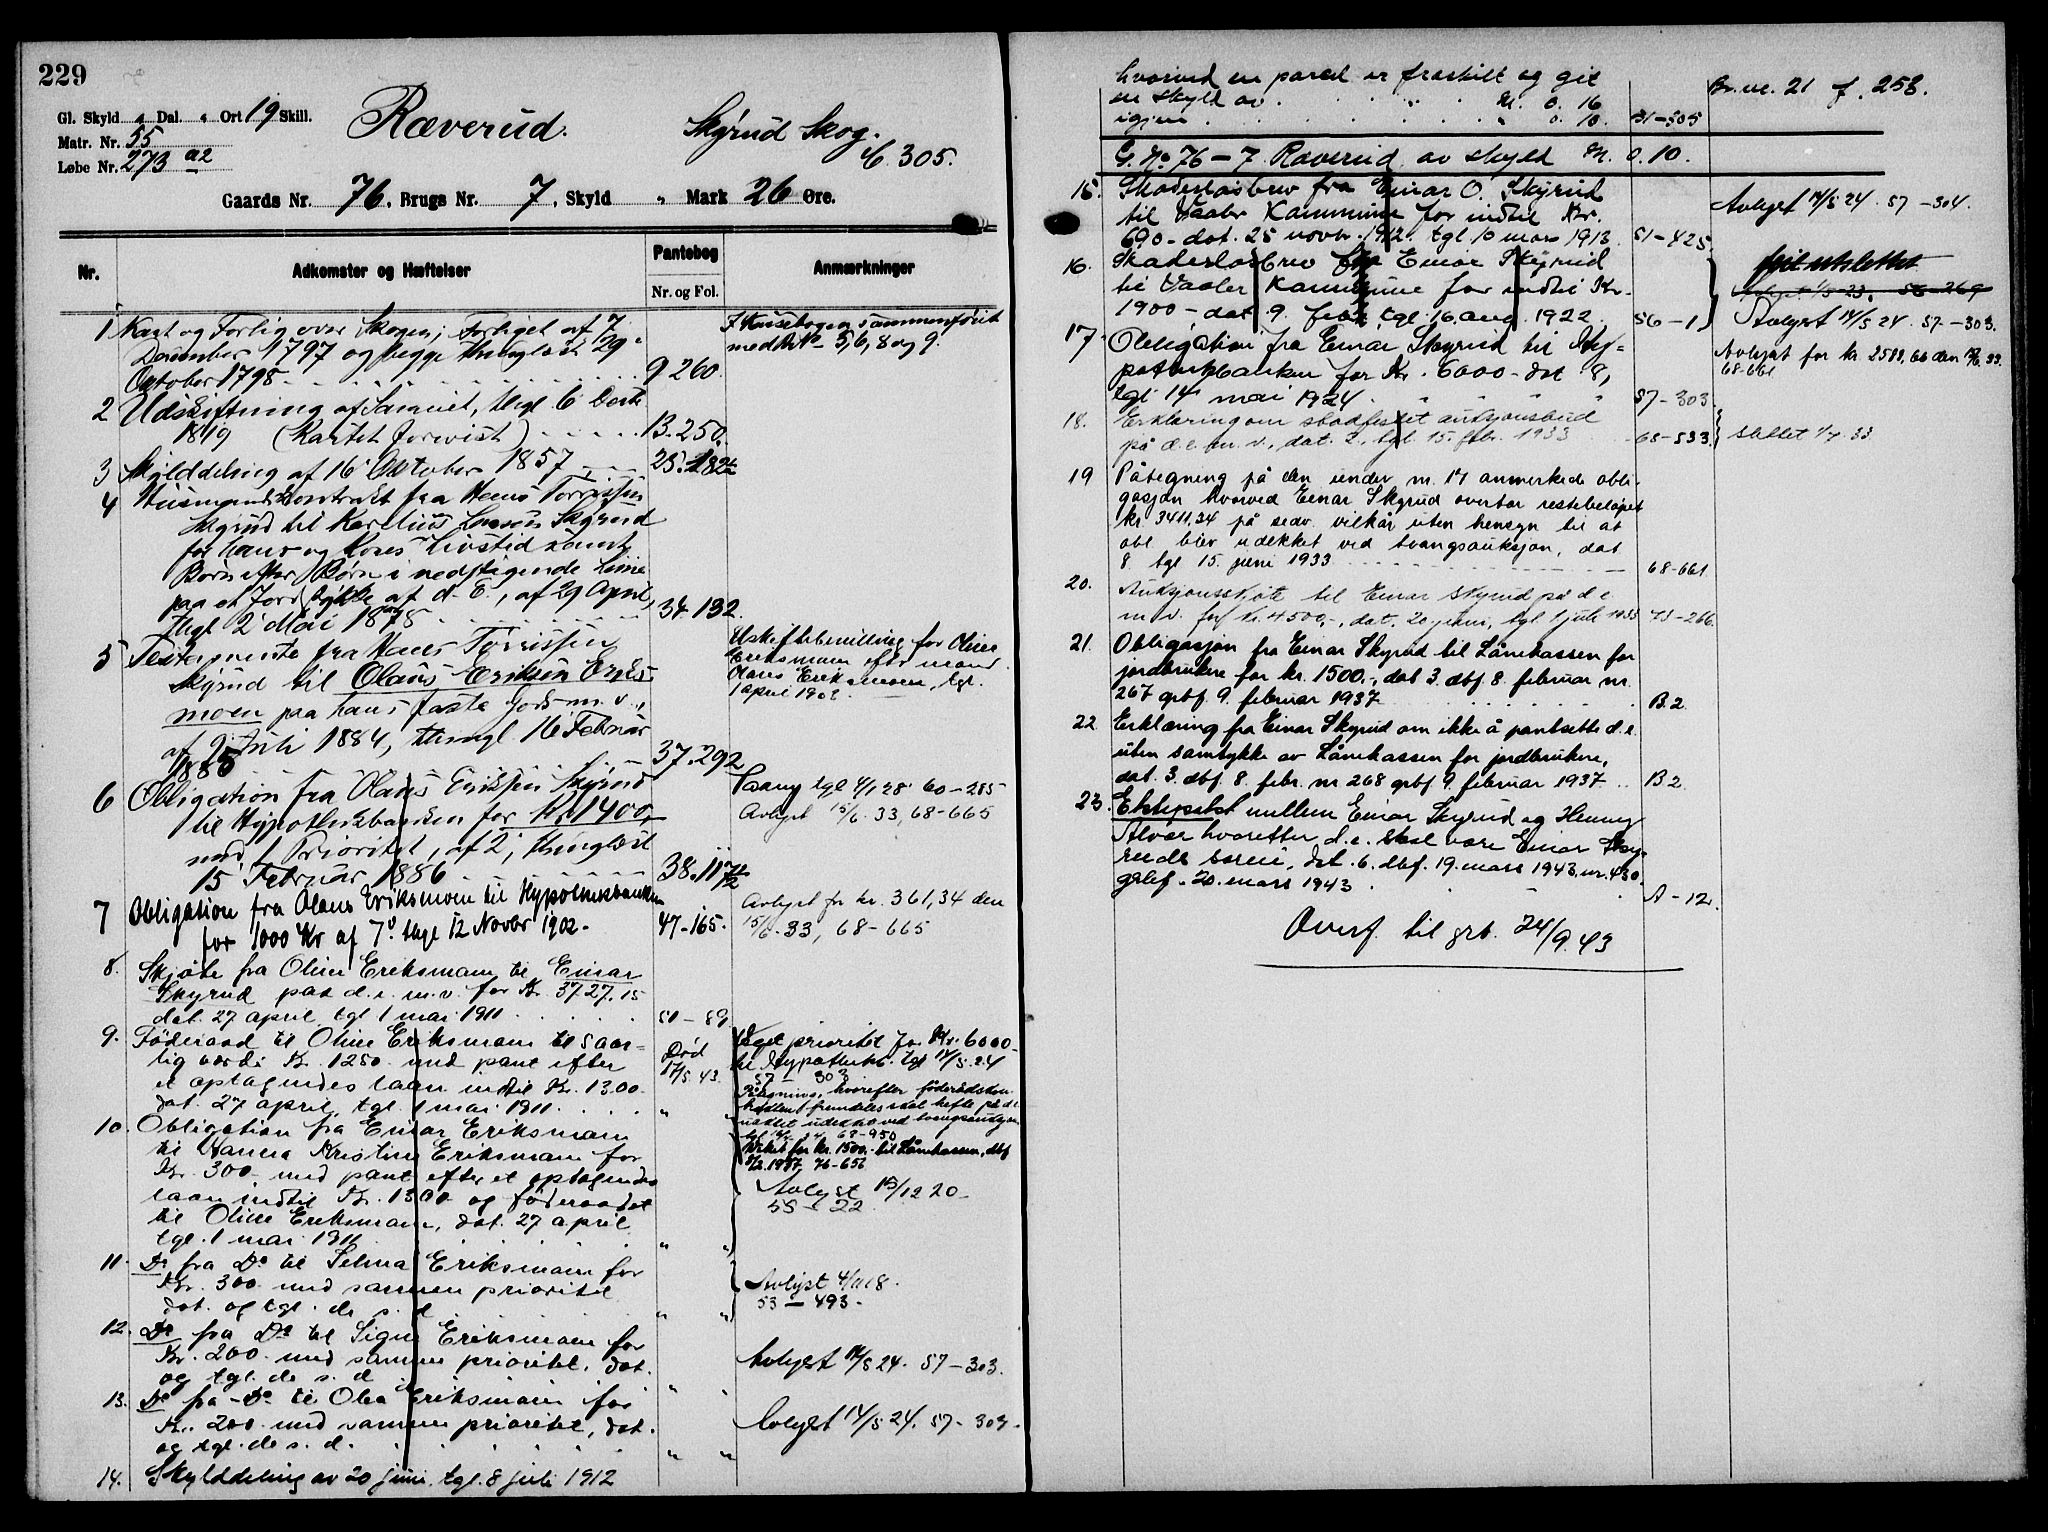 229
Gl. Skyld " Dal. " Ort 19 Skill.
Matr. Nr. 55
Løbe Nr. 273 a2
Ræverud.
Skyrud Skog.
b. 305.
Gaards Nr. 76, Brugs Nr. 7, Skyld " Mark 26 Øre.
Nr.
Adkomster og Hæftelser
Pantebog
Nr. og Fol.
Anmærkninger
1 Kart og Forlig over Skogen; Forliget af 7
December 1797 og begge thinglæst 29
Oktober 1798 9 260.
2 Udskiftning af Sameiet, thgl 6
1819 (Kartet forevist) 13.250.
3 Skylddeling af 16 Oktober 1857 25.182
4 Husmandskontrakt fra Hans Torrissen
Skyrud til Karelius Larsen Skyrud
for hans og Kones Livstid samt
Børn efter Børn i nedstigende Linie
paa et Jordstykke af d. E., af 29 April,
thgl 2 Mai 1878 34.132.
5 Testamente fra Hans Torrissen
Skyrud til Olaus Eriksen Eriks-
moen paa hans faste Gods m.v.,
af 9 Juli 1884, thingl 16 Februar
1885 37.292
6 Obligation fra Olaus Eriksen Skyrud
til Hypothekbanken for Kr 1400,
med 1 Prioritet, af 2, thinglæst
15 Februar 1886 38.117
7 Obligation fra Olaus Eriksmoen til Hypothekbanken
for 1000 Kr af 7, thgl 12 Novbr 1902. 47-165.
8. Skjøte fra Oline Eriksmoen til Einar
Skyrud paa d.e. m.v. for Kr. 3727.15
dat. 27 april tgl 1 mai 1911 50-89
9. Föderaad til Oline Eriksmoen til 5 aar-
lig værdi Kr. 1250 med pant efter
et optagendes laan indtil Kr. 1300
dat. 27 april, tgl. 1 mai 1911. "
Død
17/5.43.
10. Obligation fra Einar Eriksmoen
til Hanna Kristine Eriksmoen for
Kr. 300 med pant efter et optagendes
laan indtil Kr. 1300 og föderaadet
til Oline Eriksmoen, dat. 27 april
tgl. 1 mai 1911 " "
11. Do fra Do til Selma Eriksmoen for
Kr. 300 med samme prioritet
dat. og tgl. de s. d " "
12. Do fra Do til Signe Eriksmoen for
Kr. 200 med samme prioritet, dat.
og tgl. de s. d " "
13. Do fra Do til Olea Eriksmoen for
Kr. 200 med samme prioritet, dat.
og tgl. de s. d. " "
14. Skylddeling av 20 juni, tgl. 8 juli 1912
I Pantebogen sammenført
med Br.No 5, 6, 8 og 9.
Uskiftebevilling for Oline
Eriksmoen efter mand
Olaus Eriksmoen, tgl.
1 april 1902
tgl 4/1 28 60-285
Avlyst 15/6.33, 68-665
Avlyst for kr. 361,34 den
15/6-33, 68-665
prioritet for Kr. 6000-
til Hypothekb. tgl 14/5.24
57-303
Påtegning, hvorefter føderådskon-
fremdeles skal hefte på d.e.
ved tvangsauksjon
68-950
Veket for kr. 1500.- til Lånekassen, dbf
1937 76-656
Avlyst 13/12 20
55-22
Avlyst 4/11 18.
53-493.
Avlyst 14/5 24. 57-303.
Avlyst 14/5 24. 57-303.
hvorved en parcel er fraskilt og git
en skyld av M. 0. 16
igjen " 0. 10. 51-305
Br. nr. 21 f. 258.
G. No 76-7. Ræverud av skyld M. 0.10.
15. Skadesløsbrev fra Einar O. Skyrud
til Vaaler Kommune for indtil Kr.
690- dat. 25 novbr. 1912. tgl 10 mars 1913. 51-425
Avlyst 14/5 24. 57-304.
16. Skadesløsbrev fra Einar Skyrud
til Vaaler Kommune for indtil Kr.
1900- dat 9. febr. tgl. 16. aug. 1922. 56-1
feil utslettet
Avlyst 1/5-23. 56-269
Avlyst 14/5 24. 57-303.
17. Obligation fra Einar Skyrud til Hy-
pothekbanken for Kr. 6000- dat 8,
tgl 14 mai 1924. 57-303
Avlyst for kr 2588,66 den 15/6.33.
68-661
18. Erklæring om stadfestet auksjonsbud
på d.e. m. v., dat. 2., tgl. 15. febr. 1933 68-533
Slettet 1/7.33
19 Påtegning på den under nr. 17 anmerkede obli-
gasjon hvorved Einar Skyrud overtar restebeløpet
kr. 3411,34 på sedv. vilkår uten hensyn til at
obl. blev udekket ved tvangsauksjon, dat
8. tgl 15. juni 1933 68-661
20. Auksjonsskjøte til Einar Skyrud på d.e
m.v. for kr. 4500,-, dat. 20 juni, tgl 1 juli 1933 73-266.
21. Obligasjon fra Einar Skyrud til Lånekassen for
jordbrukere for kr. 1500.-, dat 3. dbf. 8. februar nr.
267 grbf. 9. februar 1937 B.2
22 Erklæring fra Einar Skyrud om ikke å pantsette d.e.
uten samtykke av Lånekassen for jordbrukere,
dat. 3. dbf. 8. febr. nr 268 grbf. 9. februar 1937 B 2
23. Ektepakt mellem Einar Skyrud og Henny
Alvær hvoretter d.e. skal være Einar Sky-
ruds særeie, dat. 6. dbf. 19. mars 1943, nr. 430.
grbf. 20. mars 1943 A-12.
Overf. til grb. 24/9.43